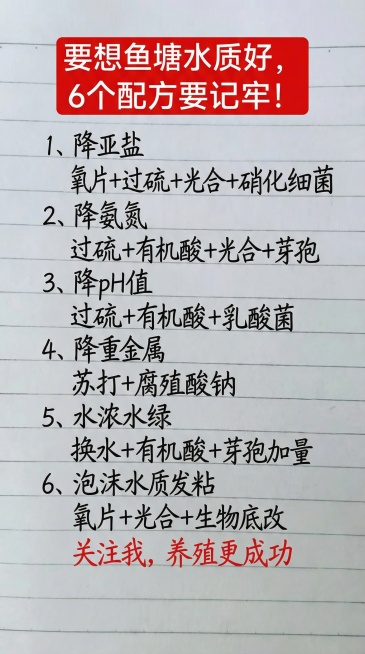 要想鱼塘水质好，
6个配方要记牢！
1、降亚盐
氧片+过硫+光合+硝化细菌
2、降氨氮
过硫+有机酸+光合+芽孢
3、降pH值
过硫+有机酸+乳酸菌
4、降重金属
苏打+腐殖酸钠
5、水浓水绿
换水+有机酸+芽孢加量
6、泡沫水质发粘
氧片+光合+生物底改
关注我，养殖更成功